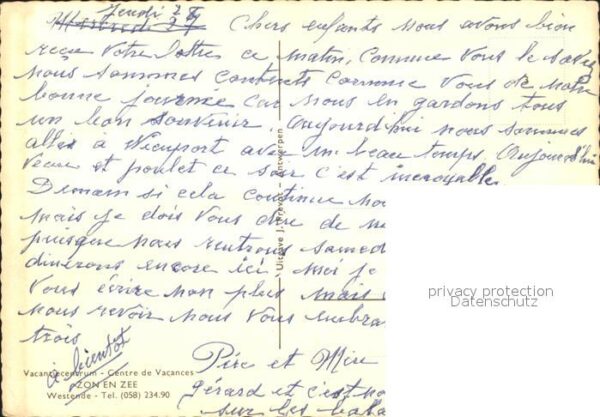 Jeudi
Mercredi Chers enfants nous avons bien
reçu votre lettre ce matin, comme vous le savez
nous sommes contents comme vous de notre
bonne journée car nous en gardons tous
un bon souvenir. Aujourd'hui nous sommes
allés à Nieuport avec un beau temps. Aujourd'hui
veau et poulet ce soir c'est incroyable
Demain si cela continue
mais je dois vous dire de
puisque nous rentrons samed
dinerons encore ici
vous écrire non plus mais
nous revoir nous vous embra
trois
à bientôt
Père et Mère
Gérard et c'est
sur les
Uitgave J. Prevot - Antwerpen
Vacantiecentrum - Centre de Vacances
ZON EN ZEE
Westende - Tel. (058) 234.90
privacy protection
Datenschutz